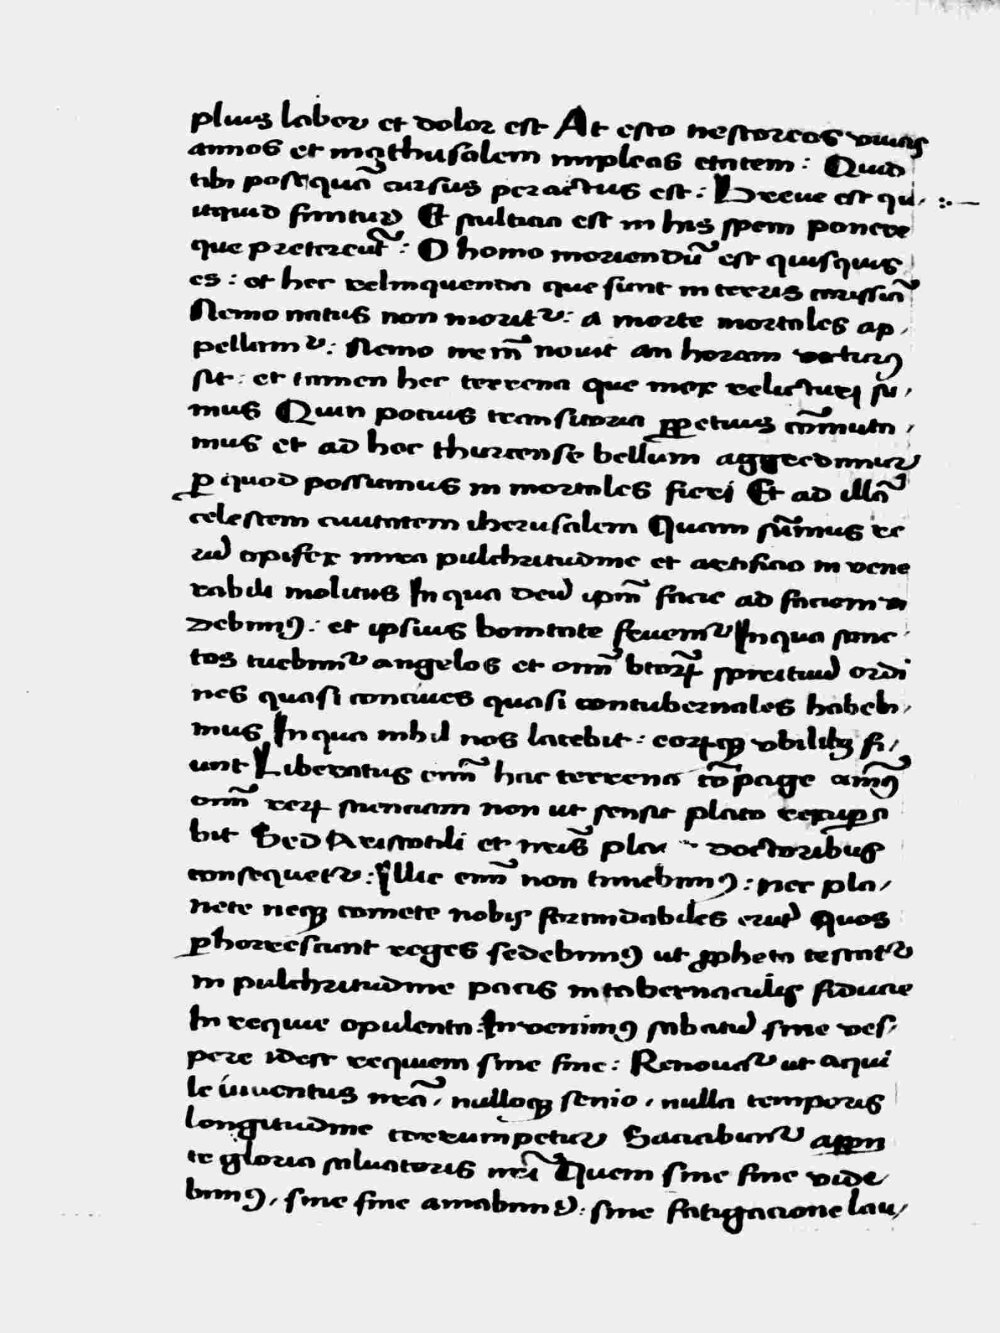 plius labor et dolor est At esto nestoreos viuas
annos et mathusalem impleas etatem : Quid
tibi postquã cursus peractus est : Breue est qui,
icquid finitur Et stulticia est in his spem ponere
que pretereut̃ : O homo moriendũ est quisquis
es : et hec relinquenda que sunt in terris carissiã
Nemo natus non morit᷑ : a morte mortales ap,
pellam᷑ : Nemo nr̃m nouit an horam victurꝯ
sit : et tamen hec terrena que mox relicturi su,
mus Quin potius transitoria ꝑpetuis cõmuta,
mus et ad hoc thurcense bellum aggredimur
ꝑ quod possumus in mortales fieri Et ad illã
celestem ciuitatem iherusalem Quam sũmus re
rũ opifex mira pulchritudine et artificio in vene
rabili molitus In qua deũ ipm̃ facie ad faciem vi
debimꝯ : et ipsius bonitate fruem᷑ In qua sanc
tos tuebim᷑ angelos et om̃ btoꝝ spirituũ ordi
nes quasi conciues quasi contubernales habebi,
mus In qua nihil nos latebit : corꝑa vbilibꝫ fi,
unt Liberatus em̃ hac terrena cõpage aĩmꝯ
om̃ reꝝ scienciam non ut sensit plato recuꝑa
bit Sed Aristotili et nr̃is plac doctoribus
consequet᷑ : Illic em̃ non timebimꝯ : nec pla,
nete neqꝫ comete nobis formidabiles erũt Quos
ꝑhorrescunt reges sedebimꝯ ut ꝓpheta testat᷑
in pulchritudine pacis in tabernaculis fiducie
In requie opulenta : Inuenimꝯ sabatũ sine ves,
pere idest requiem sine fine : Renouat᷑ ut aqui
le iuuentus nr̃a, nulloqꝫ senio, nulla temporis
longitudine corrumpetur Saciabim᷑ appa
te gloria saluatoris nr̃i Quem sine fine vide
bimꝯ, sine fine amabim᷑ : sine fatigacione lau,